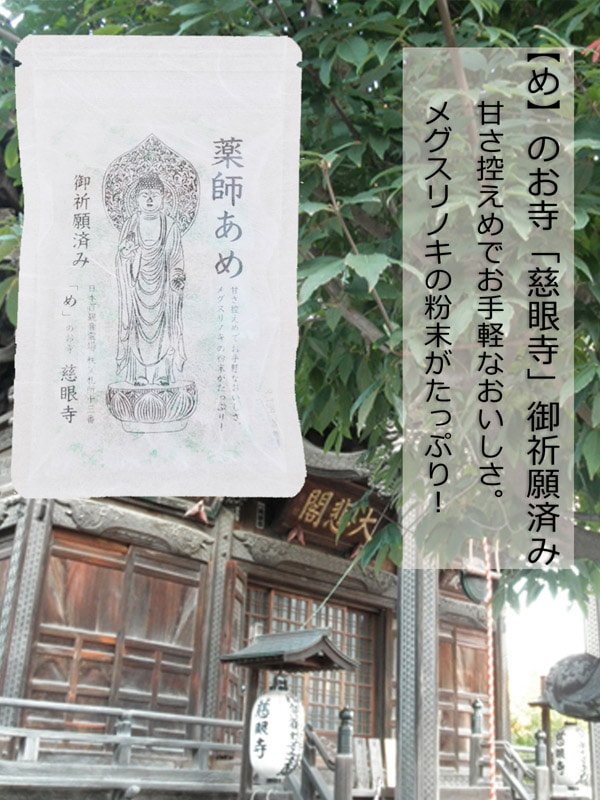 【め】のお寺「慈眼寺」御祈願済み
甘さ控えめでお手軽なおいしさ。
メグスリノキの粉末がたっぷり！
薬師あめ
甘さ控えめでお手軽なおいしさ
メグスリノキの粉末がたっぷり！
御祈願済み
日本百観音霊場 秩父札所十三番
「め」のお寺 慈眼寺
大悲閣
慈眼寺
慈眼寺